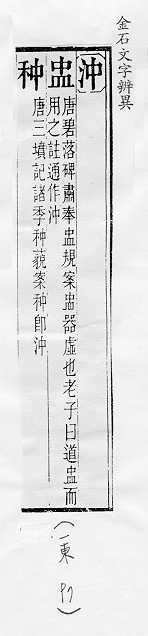 金石文字辨異
沖
盅 唐碧落碑肅奉盅規案盅器虛也老子曰道盅而
用之註通作沖
种 唐三墳記諸季种藐案种卽沖
(一東 97)